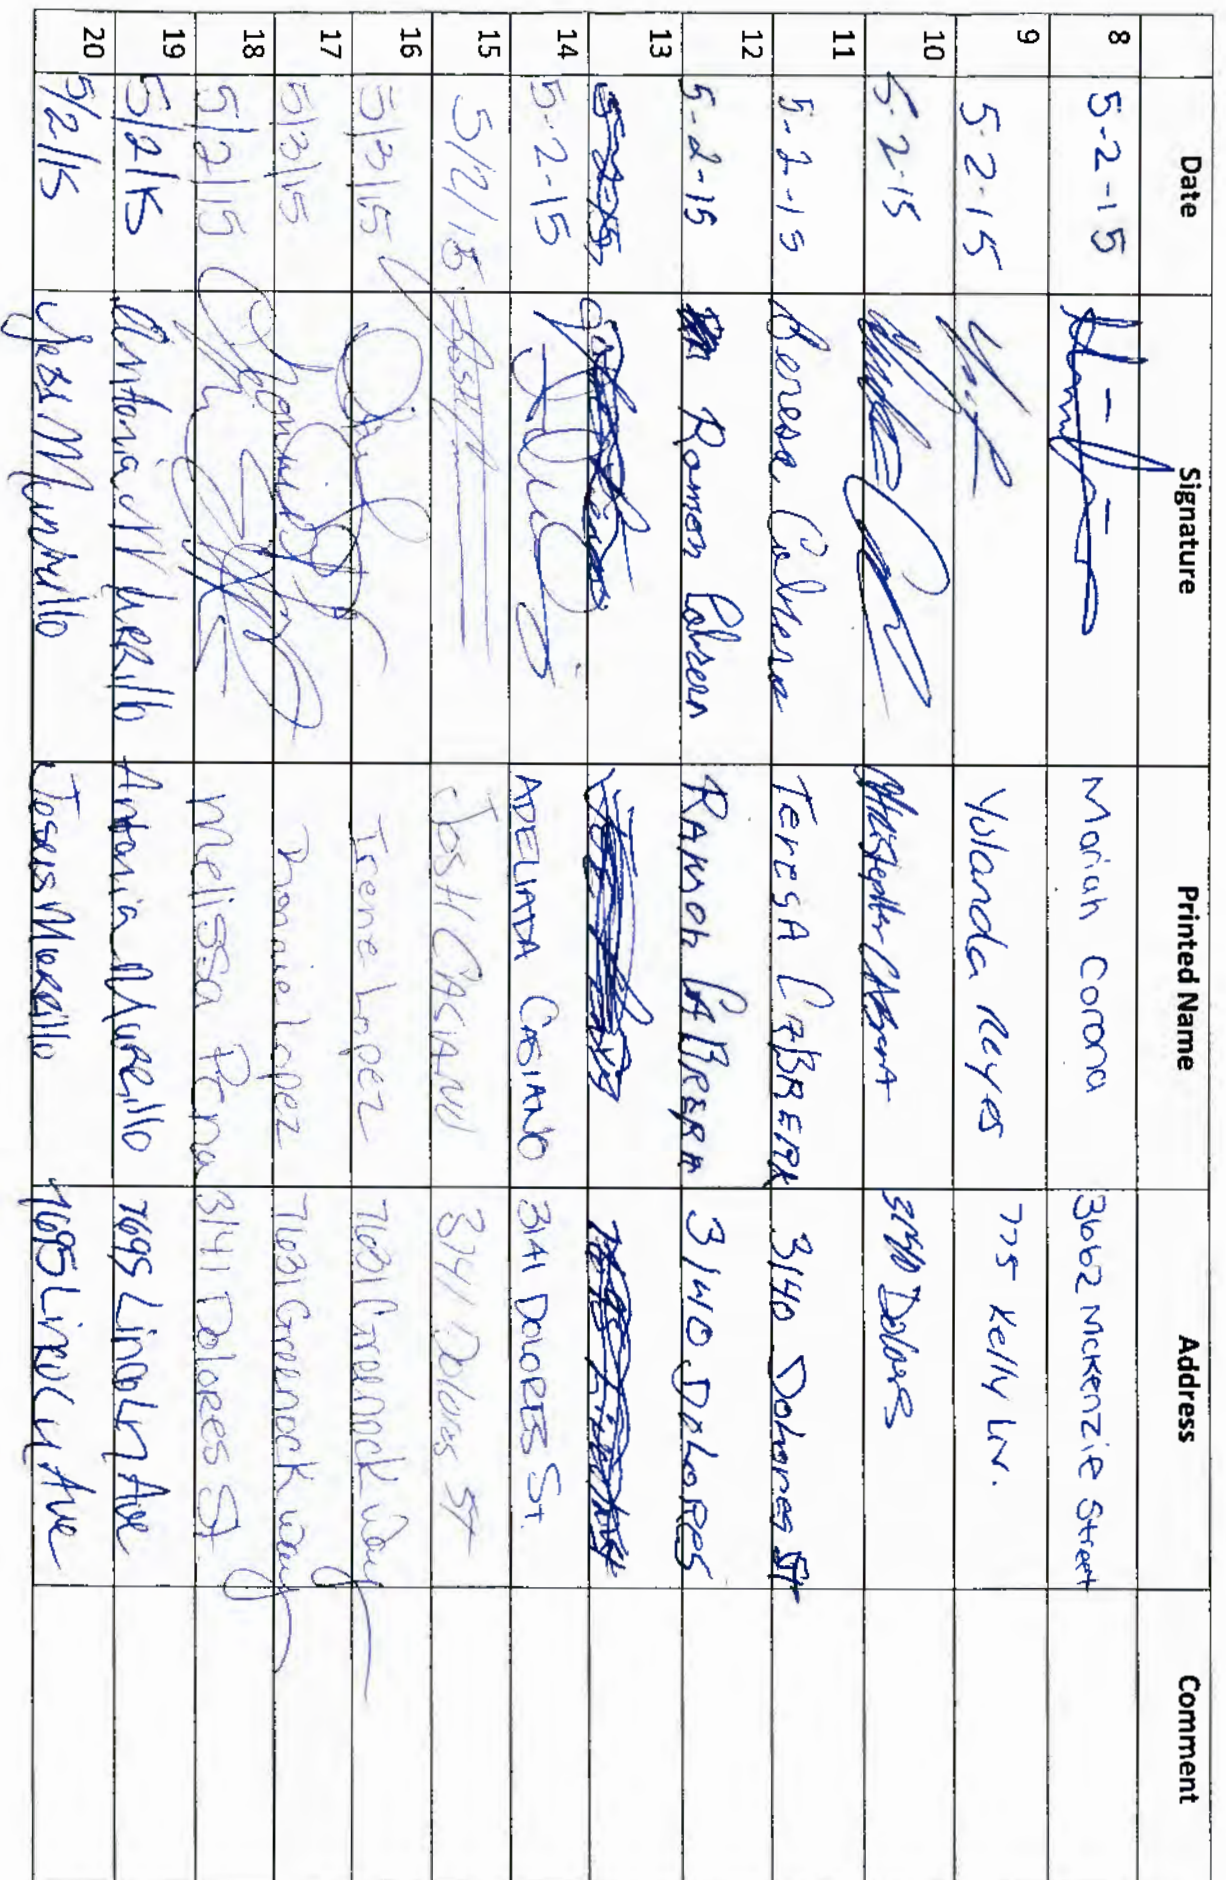 Date Signature Printed Name Address Comment
8 5-2-15 Mariah Corona 3662 McKenzie Street
9 5-2-15 Yolanda Reyes 775 Kelly LN.
10 5-2-15 Christopher CABrerA 3140 Dolores
11 5-2-15 Teresa Cabrera TeresA CABRERA 3140 Dolores St
12 5-2-15 Ramon Cabrera RAMON CABRERA 3140 DOLORES
13 5-2-15
14 5-2-15 ADELIADA CASIANO 3141 DOLORES St.
15 5/2/15 JOSH CASIANO 3141 Dolores ST
16 5/3/15 Irene Lopez 7631 Greenock Way
17 5/3/15 Lopez 7631 Greenock way
18 5/2/15 Melissa Pena 3141 Dolores St.
19 5/2/15 Antonia Murrillo Antonia Murrillo 7695 Lincoln Ave
20 5/2/15 Murrillo Murrillo 7695 Lincoln Ave